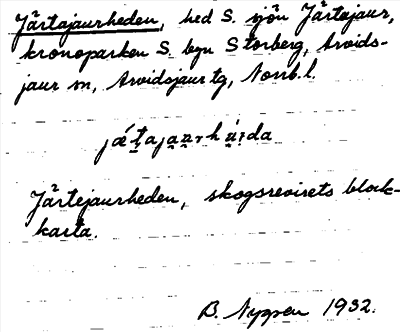 Järtajaurheden, hed S. sjön Järtajaur,
kronoparken S. byn Storberg, Arvids-
jaur sn, Arvidsjaur tg, Norrb. l.
Järtejaurheden, skogsrevisets block-
karta.
B. Nygren 1932.